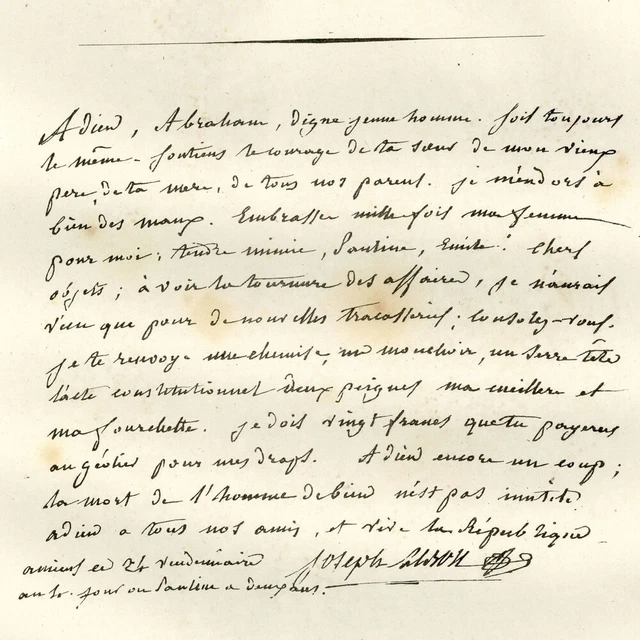 Adieu, Abraham, digne jeune homme. Sois toujours
le même. Soutiens le courage de ta sœur de mon vieux
pere, de ta mere, de tous nos parens. je m'endors à
bien des maux. Embrasse mille fois ma femme
pour moi; tendre mimie, Pauline, Emile: chers
objets; à voir la tournure des affaires, je n'aurais
vécu que pour de nouvelles tracasseries; consolez-vous.
je te renvoye une chemise, un mouchoir, un serre tête
l'acte constitutionnel deux peignes ma cuillere et
ma fourchette. je dois vingt francs que tu payeras
au géolier pour mes draps. Adieu encore un coup;
la mort de l'homme de bien n'est pas inutile.
adieu a tous nos amis, et vive la République
amiens ce 24 vendemiaire Joseph Lebon
an 4. jour ou Pauline a deux ans.